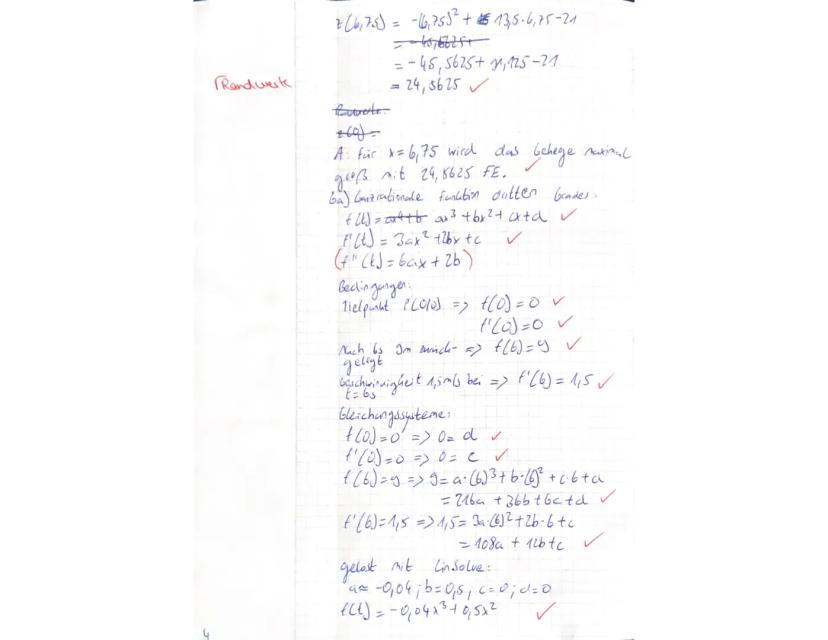 z(6,75) = -(6,75)² + 13,5·6,75-21
= -45,5625+
= -45,5625+ 91,125-21
= 24,5625 ✓
Randwerte
z(0)=
A: für x=6,75 wird das Gehege maximal
groß mit 24,5625 FE. ✓
6a) Ganzrationale Funktion dritten Grades:
f(t)= ax³+bx²+cx+d ✓
f'(t)= 3ax²+2bx+c ✓
(f''(t)=6ax+2b)
Bedingungen:
Tiefpunkt P(0|0) => f(0)=0 ✓
f'(0)=0 ✓
Nach 6s 9m zurück- => f(6)=9 ✓
gelegt
Geschwindigkeit 1,5m/s bei => f'(6)=1,5 ✓
t=6s
Gleichungssysteme:
f(0)=0 => 0=d ✓
f'(0)=0 => 0=c ✓
f(6)=9 => 9=a·(6)³+b·(6)²+c·6+d
=216a+36b+6c+d ✓
f'(6)=1,5 => 1,5=3a·(6)²+2b·6+c
=108a+12b+c ✓
gelöst mit LinSolve:
a≈-0,04; b=0,5, c=0; d=0
f(t)=-0,04x³+0,5x² ✓
4